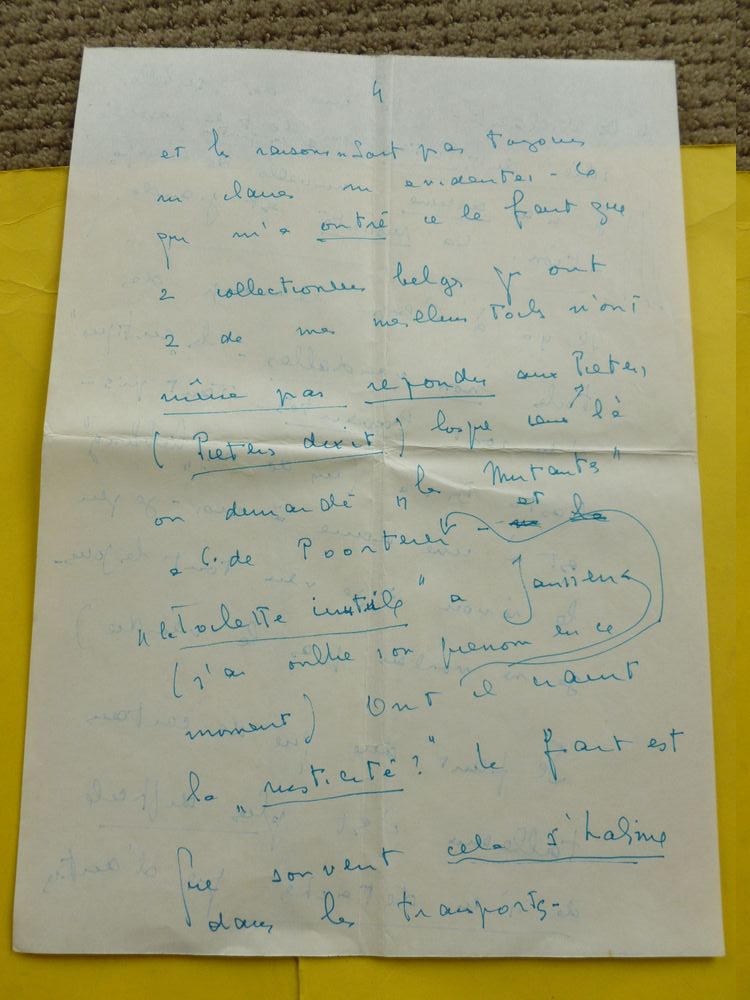 4
et les raisons n sont pas toujours
ni claires ni evidentes - Ce
qui m'a outré c le fait que
2 collectionneurs belges qui ont
2 de mes meilleurs toiles n'ont
même pas repondu aux Pieters,
(Pieters dixit) lorsque ceux là
on demandé "les Mutants"
a C. de Poorterer - et
"la Toilette inutile" a Janssens
(j'ai oublié son prenom en ce
moment) Ont il craint
la "rusticité?" le fait est
que souvent cela s'habime
dans les transports-